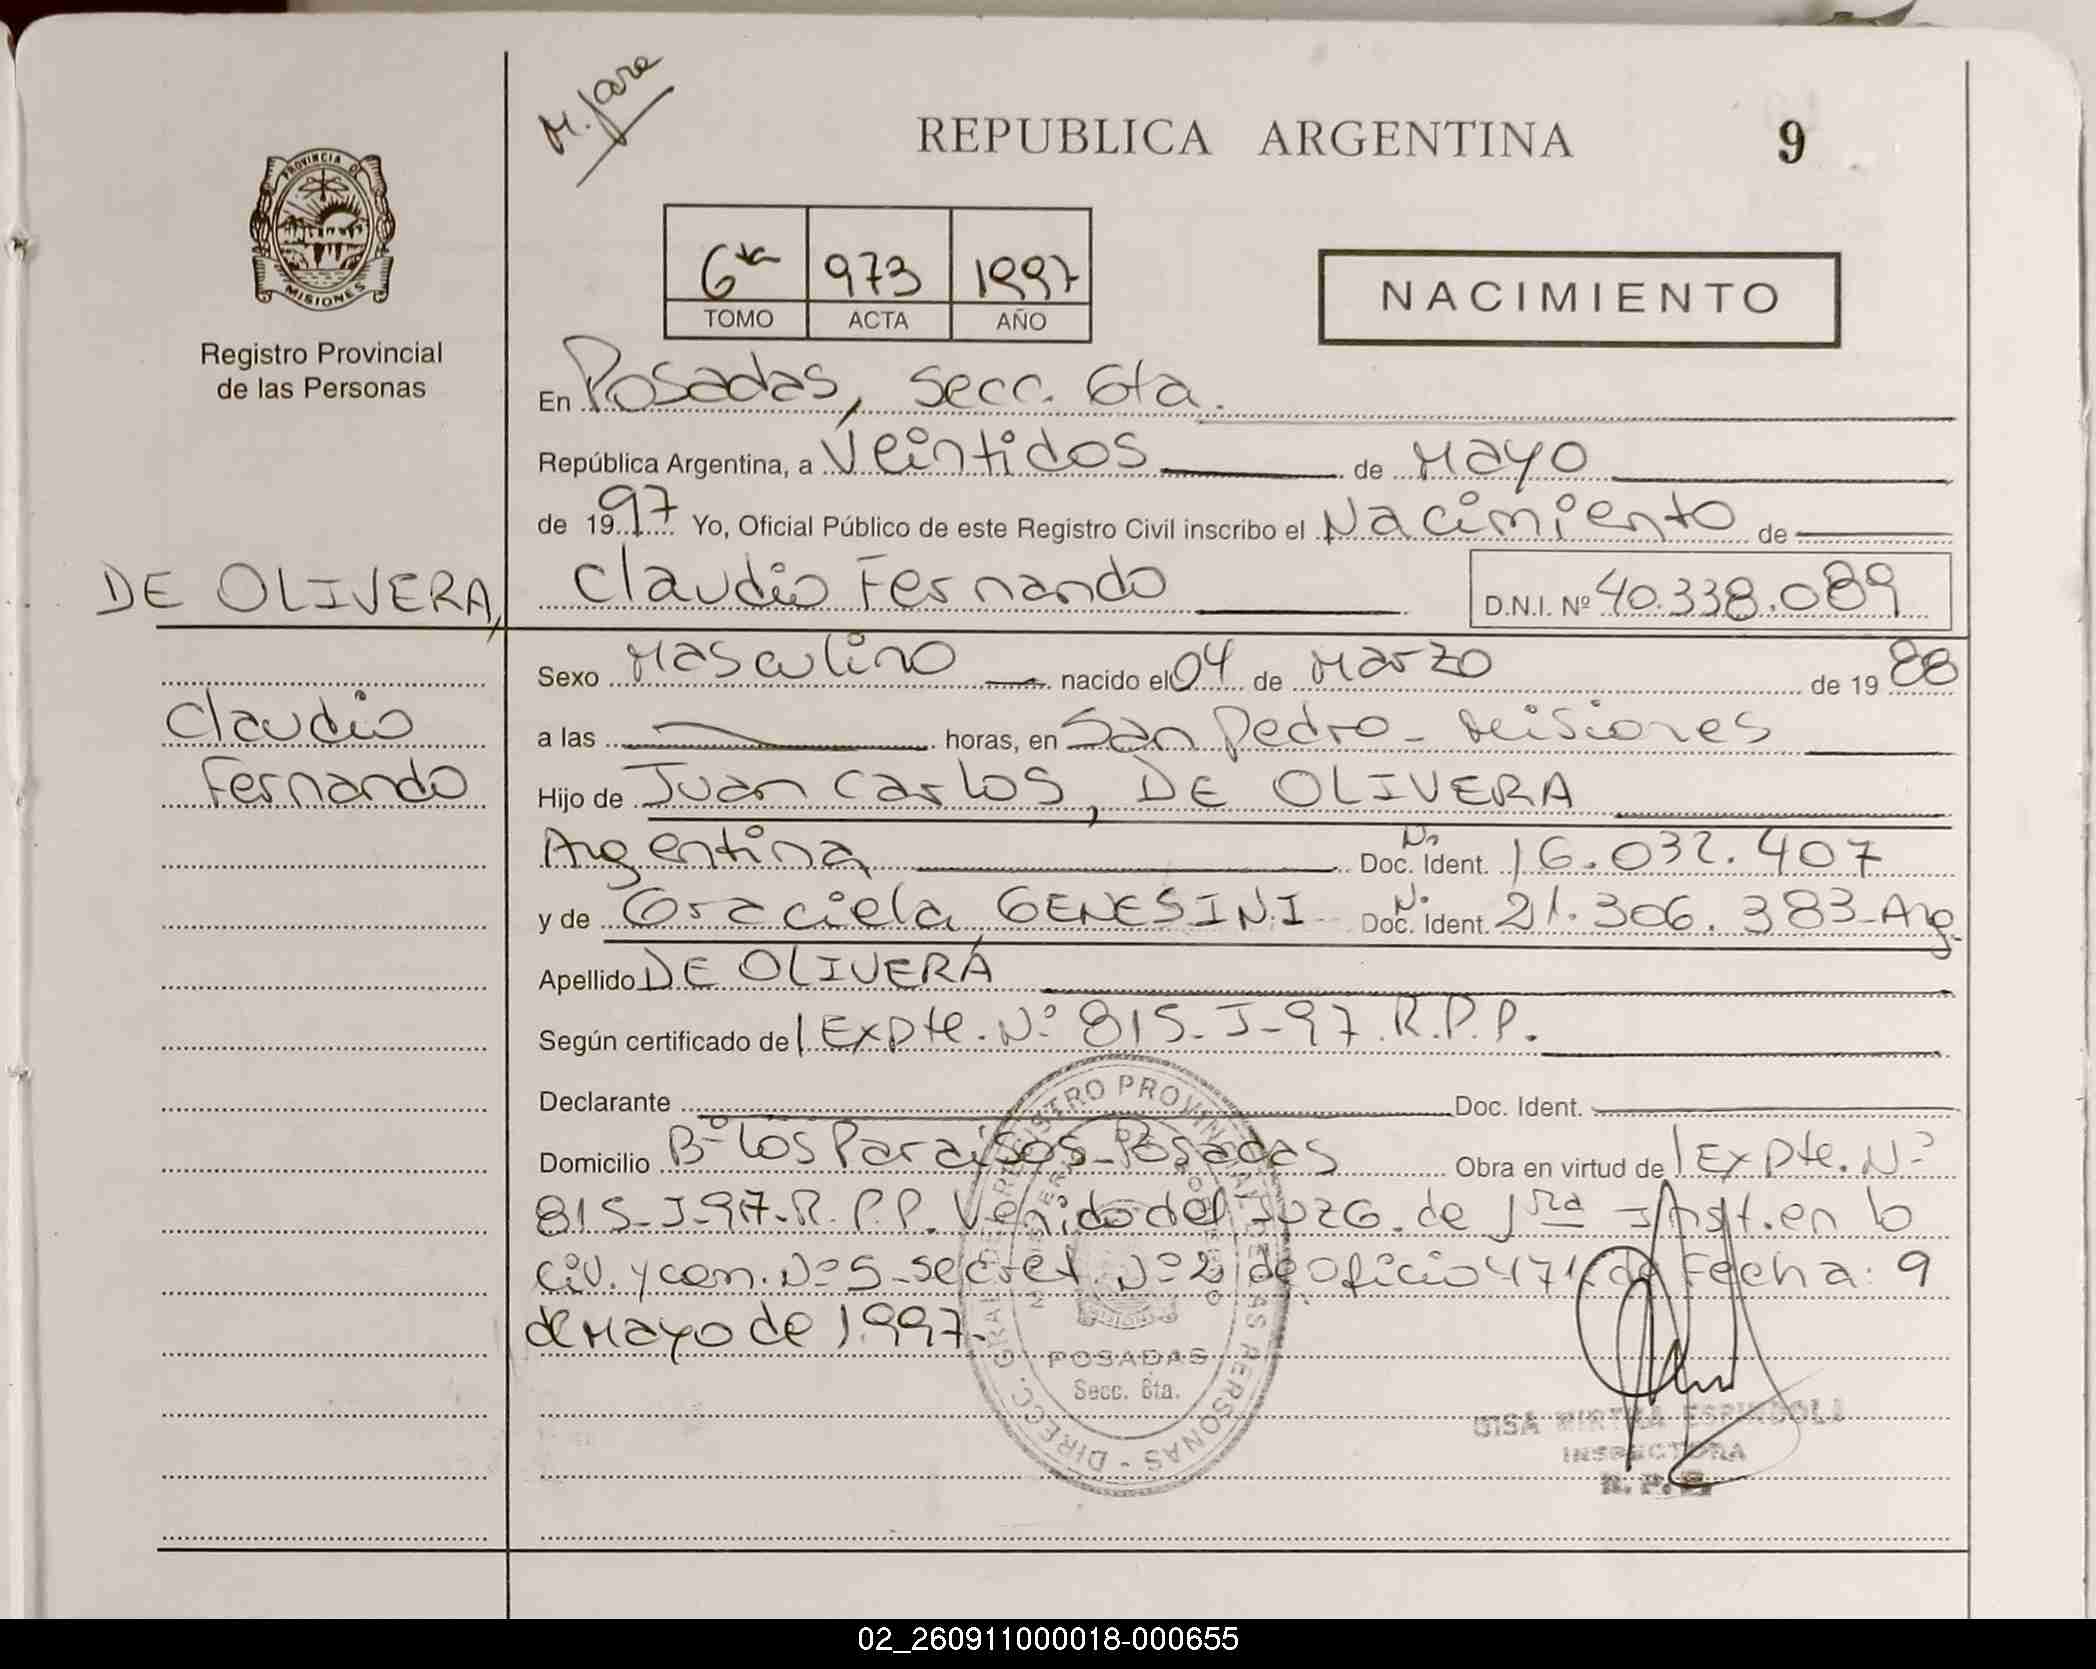 REPUBLICA ARGENTINA 9
PROVINCIA DE
MISIONES
Registro Provincial
de las Personas
6ta 973 1997
TOMO ACTA AÑO
NACIMIENTO
En Posadas, Secc. 6ta.
República Argentina, a Veintidos de Mayo
de 1997 Yo, Oficial Público de este Registro Civil inscribo el Nacimiento de
DE OLIVERA, Claudio Fernando D.N.I. Nº 40.338.089
Sexo Masculino nacido el 04 de Marzo de 1988
Claudio
a las horas, en San Pedro - Misiones
Fernando
Hijo de Juan Carlos, DE OLIVERA
Argentina No Doc. Ident. 16.032.407
y de Graciela GENESINI N. Doc. Ident. 21.306.383-Arg.
Apellido DE OLIVERA
Según certificado de Expte. Nº 815-J-97.R.P.P.
Declarante Doc. Ident.
Domicilio Bº Los Paraísos-Posadas Obra en virtud de Expte. Nº
815-J-97-R.P.P. Venido del Juzg. de 1ra Inst. en lo
Civ. y com. Nº 5 - secret. Nº 2 de oficio de Fecha: 9
de Mayo de 1997.
DIRECC. GRAL DE REGISTRO PROVINCIAL DE LAS PERSONAS
POSADAS
Secc. 6ta.
MIRTHA ESPINDOLA
INSPECTORA
02_260911000018-000655